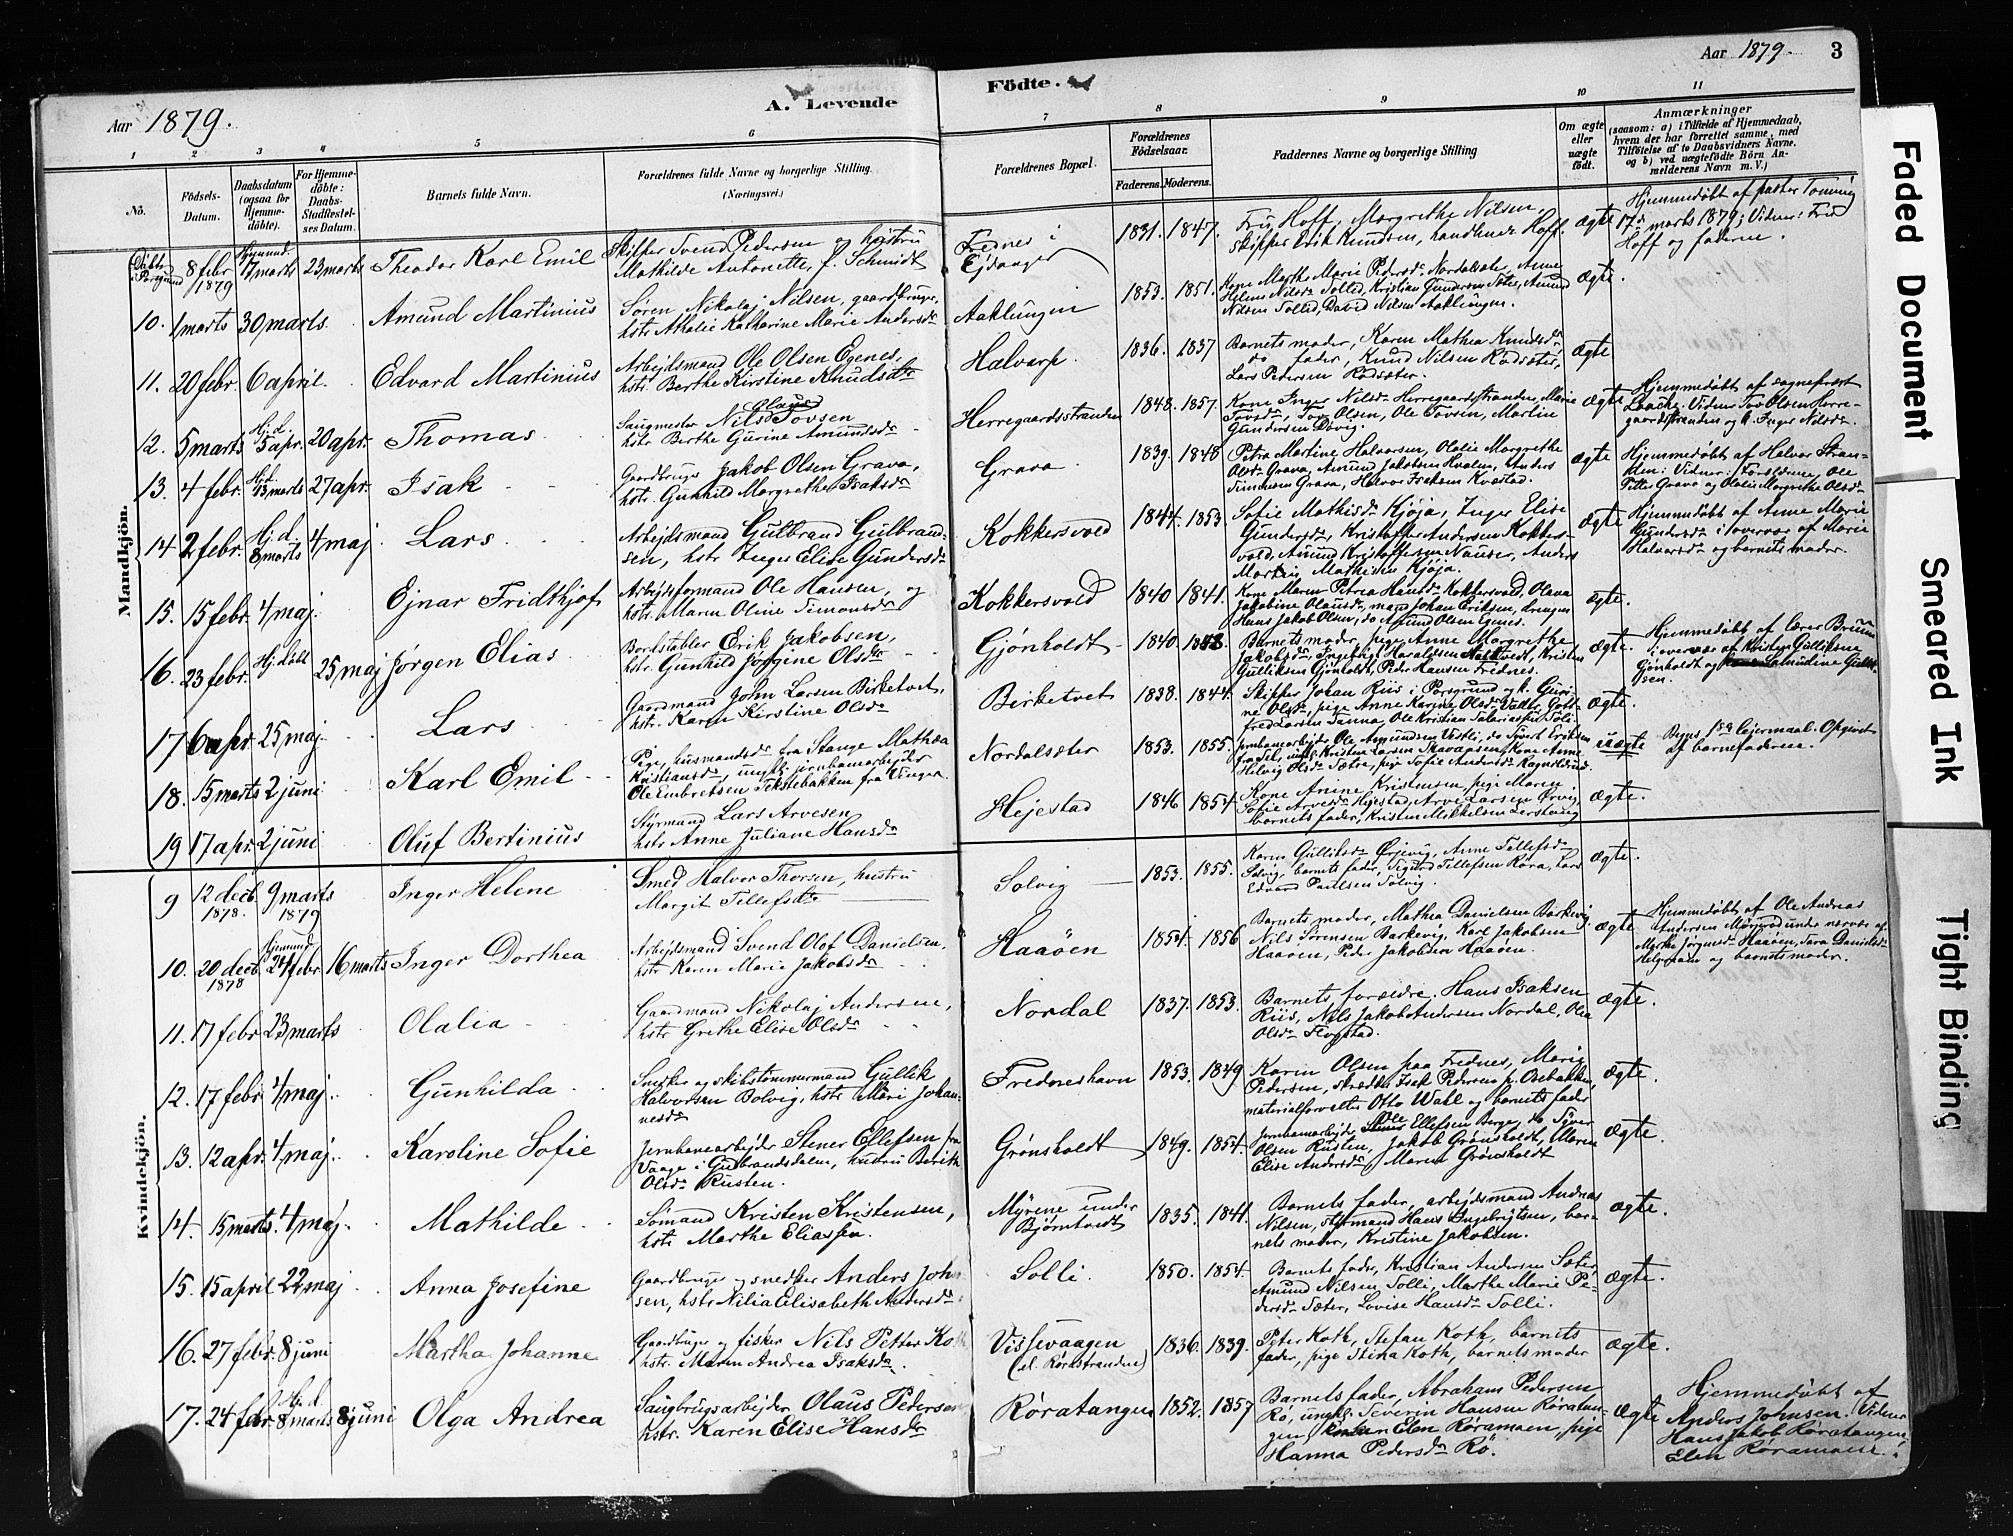 Aar 1879.
A. Levende
Födte.
Aar 1879.
3
1 2 3 4 5 6 7 8 9 10 11
No.
Födsels-
Datum.
Daabsdatum
(ogsaa for
Hjemme-
döbte).
For Hjemme-
döbte:
Daabs-
Stadfæstel-
ses Datum.
Barnets fulde Navn.
Forældrenes fulde Navne og borgerlige Stilling.
(Næringsvei.)
Forældrenes Bopæl.
Forældrenes
Födselsaar.
Faderens. Moderens.
Faddernes Navne og borgerlige Stilling
Om ægte
eller
uægte
födt.
Anmærkninger
(saasom: a) i Tilfælde af Hjemmedaab,
hvem der har forrettet samme, med
Tilföielse af to Daabsvidners Navne,
og b) ved uægtefödte Börn An-
melderens Navn m. V.)
Mandkjön.
8 febr 1879 17 marts 23 marts Theodor Karl Emil
Skipper Svend Pedersen og hustru
Mathilde Antonette, f. Schmidt
Frednes i
Ejdanger
1831. 1847.
Fru Hoff, Margrethe Nilsen,
skipper Erik Knudsen, Hoff.
ægte
Hjemmedøbt af pastor
17de marts 1879; Vidner: Fru
Hoff og faderen.
10. 1 marts 30 marts. Amund Martinius
Søren Nikolaj Nilsen, gaardbruger,
hstr. Athalie Katharine Marie Andersdr
Aaklungen
1853. 1851.
Kone Marthe Marie Pedersdr Nordalsæter, Anne
Helene Nilsdr Tollid, Kristian Gundersen Sæter, Amund
Nilsen Tollid, David Nilsen Aaklungen.
ægte.
11. 20 febr. 6 april. Edvard Martinius
Arbejdsmand Ole Olsen Egenes,
hstr. Berthe Kirstine Knudsdtr
Halvarp.
1836. 1837
Barnets moder, Karen Mathea Knudsdr
do fader, Knud Nilsen Rødsæter,
Lars Pedersen Rødsæter.
ægte
12. 5 marts Hj.d. 5 apr. 20 apr. Thomas
Saugmester Nils Olaus Tovsen
hstr. Berthe Gurine Amundsdr
Herregaardsstranden
1848. 1857.
Kone Inger Nilsdr Herregaardsstranden, Marie
Tovsdr, Tov Olsen, Ole Tovsen, Martin
Gundersen Døvig.
ægte
Hjemmedøbt af sognepræst
Vidner Tov Olsen Herre-
gaardstranden og k. Inger Nilsdr.
13. 4 febr. Hj.d. 13 marts 27 apr. Isak
Gaardbruger Jakob Olsen Grava,
hstr. Gunhild Margrethe Isaksdr
Grava.
1839. 1848
Petra Martine Halvorsen, Olalie Margrethe
Olsdr Grava, Amund Jakobsen Hvalen, Anders
Simonsen Grava, Halvor Isaksen Kvæstad.
ægte
Hjemmedøbt af Halvor Stran-
den: Vidner: Forældrene, Ole
Petter Grava og Olalie Margrethe Olsdr
14. 2 febr. Hj.d. 8 marts 4 maj Lars
Arbejdsmand Gulbrand Gulbrand-
sen, hstr Inger Elise Gundersdr
Kokkersvold
1844. 1853.
Sofie Mathisdr Kjøja, Inger Elise
Gundersdr, Kristoffer Andersen Kokkers-
vold, Amund Kristoffersen Nauser, Anders
Martin Mathisen Kjøja.
ægte
Hjemmedøbt af Anne Marie
Gundersdr i overvær af Marie
Halvorsdr og barnets moder.
15. 15 febr. 4 maj. Ejnar Fridthjof
Arbejdsformand Ole Hansen, og
hstr. Maren Oline Simonsdr
Kokkersvold
1840 1841.
Kone Maren Petrea Hansdr Kokkersvold, Olava
Jakobine Olausdr, mand Johan Eriksen, drengen
Hans Jakob Olsen, do Amund Olsen Egnes.
ægte.
16. 23 febr. Hj.døbt 25 maj Jørgen Elias
Bordstabler Erik Jakobsen,
hstr. Gunhild Jørgine Olsdtr
Gjønholdt
1840. 1843
Barnets moder, pige Anne Margrethe
Jakobsdr, Ingebrigt Haraldsen, Kristen
Gulliksen Gjønholdt, Peder Hansen Frednes.
ægte.
Hjemmedøbt af lærer Bruun
i overvær af Kristen Gulliksen
Gjønholdt og Samueline Gullik-
sen.
17 6 apr 25 maj. Lars
Gaardmand John Larsen Birketvet,
hstr. Karen Kirstine Olsdr
Birketvet
1838. 1844.
Skipper Johan Riis i Porsgrund og k. Guri-
ne Olsdr, pige Anne Karine Olsdr Valler, Gott-
fred Larsen Tanna, Ole Kristian Zakariassen
ægte.
18. 15 marts 2 juni. Karl Emil
Pige, husmandsdr fra Stange Mathea
Kristiansdr, ungk. jernbanearbejder
Ole Embretsen Tekstebakken fra Vinger
Nordalsæter
1853. 1855.
Jernbanearbejder Ole Amundsen Vestli, do Sjurt Eriksen
Kristen Larsen, Kone Anne
Helvig Olsdr Sætra, pige Sofie Andersdr
uægte
Begges 1ste lejermaal. Opgivet
af barnefaderen.
19 17 apr. 2 juni Oluf Bertinius
Styrmand Lars Arvesen
hstr Anne Juliane Hansdr
Hejestad
1846 1854
Kone Anine Kristensen, pige Maren
Sofie Arvesdr Hejestad, Arve Larsen Ørvig
barnets fader, Kristen Mikkelsen Lerstang
ægte.
Kvindekjön.
9 12 decb. 1878. 9 marts 1879 Inger Helene
Smed Halvor Thorsen, hustru
Margit Tellefsdtr
Solvig
1853. 1855.
Karen Gulliksdr Ørjevig, Anne Tellefsdr
Solvig, barnets fader, Sigurd Tellefsen Røra, Lars
Edvard Paulsen Solvig.
ægte.
10. 20 decb. 1878 24 febr 16 marts Inger Dorthea
Arbejdsmand Svend Olof Danielsen,
hstr Karen Marie Jakobsdr
Haaøen
1854. 1856
Barnets moder, Mathea Danielsen Barkevig,
Nils Sørensen Barkevig, Karl Jakobsen
Haaøen, Peder Jakobsen Haaøen
ægte.
Hjemmedøbt af Ole Andreas
Andersen under nærvær af
Marthe Jørgensdr Haaøen, Sara Danielsdr
og barnets moder.
11. 17 febr 23 marts Olalia
Gaardmand Nikolaj Andersen,
hstr Grethe Elise Olsdr
Nordal
1837. 1853.
Barnets forældre. Hans Isaksen
Riis, Nils Jakob Andersen Nordal, Olea
Olsdr Flogstad.
ægte.
12. 17 febr 4 maj. Gunhilda
Snedker og skibstømmermand Gullik
Halvorsen Bolvig, hstr Mari Johan-
nesdr
Fredneshavn
1853. 1849
Karen Olsen paa Frednes, Marie
Pedersen, skrædder Isak Pedersen p. Osebakken,
materialforvalter Otto Wahl og barnets fader
ægte.
13. 12 apr. 4 maj. Karoline Sofie
Jernbanearbejder Stener Ellefsen fra
Vaage i Gudbrandsdalen, hustru Berith
Olsdr Rusten.
Grønsholdt
1849. 1854.
Jernbanearbejder Ole Ellefsen Berge, do Syver
Olsen Rusten, Jakob Grønsholdt, Maren
Elise Andersdr, Maren Grønsholdt
ægte.
14. 15 marts. 4 maj. Mathilde
Sømand Kristen Kristensen,
hstr Marthe Eliassen.
Myrene under
Bjørntvedt
1835. 1841.
Barnets fader, arbejdsmand Andreas
Nilsen, styrmand Hans Ingebrigtsen, bar-
nets moder, Kristine Jakobsen.
ægte.
15. 15 april 22 maj Anna Josefine
Gaardbruger og snedker Anders Johan-
sen, hstr Nilia Elisabeth Andersdr
Solli.
1850. 1854.
Barnets fader, Kristian Andersen Sæter
Amund Nilsen Solli, Marthe Marie Pe-
dersdr Sæter, Lovise Hansdr Solli.
ægte.
16. 27 febr. 8 juni Martha Johanne
Gaardbruger og fisker Nils Petter Koth
hstr. Maren Andrea Isaksdr.
Vissevaagen
(el. Rørastranden)
1836. 1839.
Peter Koth, Stefan Koth, barnets
fader, pige Stina Koth, barnets moder
ægte.
17. 24 febr Hj.d. 8 marts 8 juni Olga Andrea
Saugbrugsarbejder Olaus Pedersen
hstr. Karen Elise Hansdr
Røratangen
1852. 1857
Barnets fader, Abraham Pedersen
Rø, ungk. Severin Hansen Røratan-
gen, Elen Røramoen, pige
Hanna Pedersdr Rø.
ægte
Hjemmedøbt af
Anders Johnsen. Vidner
Hans Jakob Røratangen,
Elen Røramoen.
Faded Document
Smeared Ink
Tight Binding